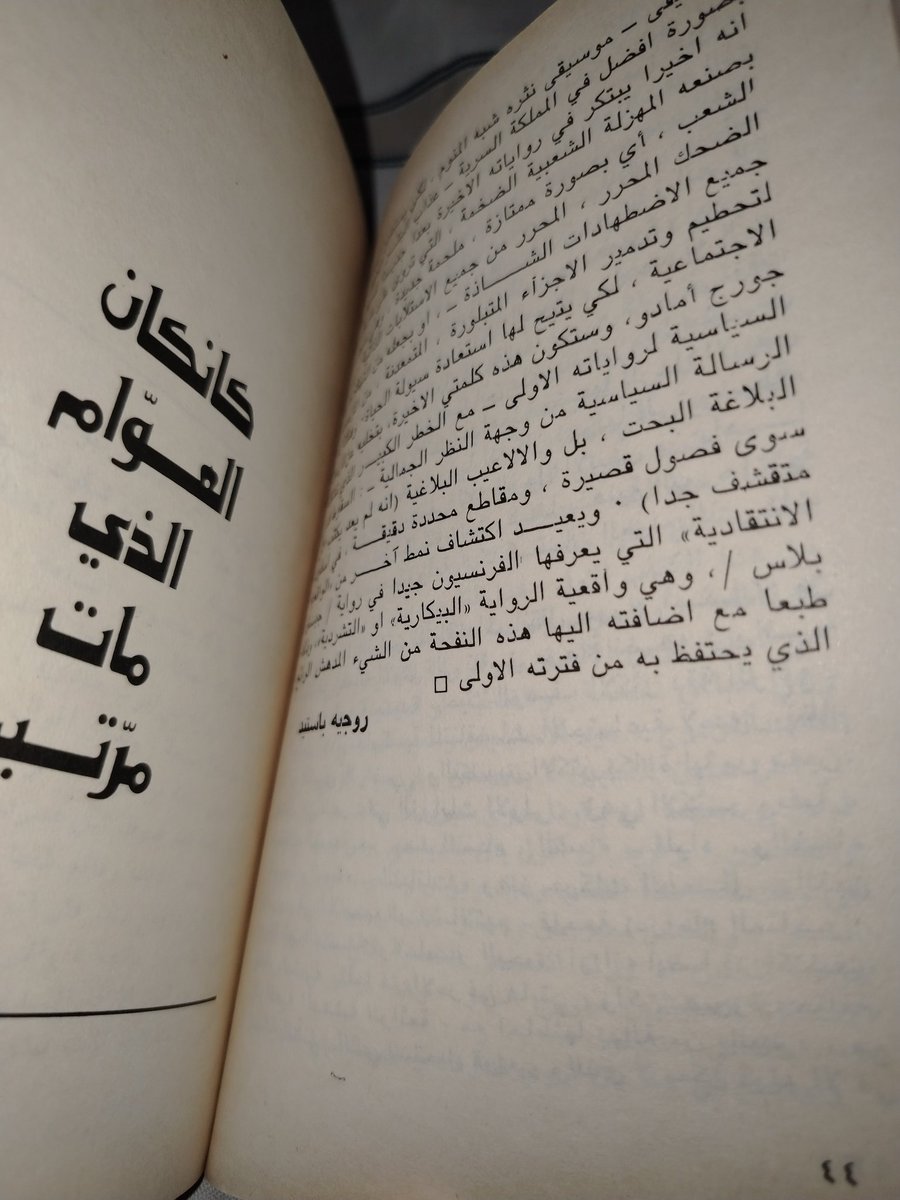 موسيقى نثره شبه المنوم
بصورة افضل في المملكة السرية –
انه اخيرا يبتكر في رواياته الاخيرة
بصنعه المهزلة الشعبية الضخمة ، التي
الشعب ، أي بصورة ممتازة ، ملحمة جديدة
الضحك المحرر ، المحرر من جميع الاستلابات
جميع الاضطهادات الشـــاذة – ، او
لتحطيم وتدمير الاجزاء المتبلورة ،
الاجتماعية ، لكي يتيح لها استعادة سيولة الحياة
جورج أمادو، وستكون هذه كلمتي الاخيرة،
السياسية لرواياته الاولى – مع الخطر الكبير
الرسالة السياسية من وجهة النظر الجمالية – :
البلاغة البحت ، بل والالاعيب البلاغية (انه لم يعد
سوى فصول قصيرة ، ومقاطع محددة دقيقة ، في
متقشف جدا) . ويعيـــد اكتشاف نمط آخر من
الانتقادية» التي يعرفها الفرنسيون جيدا في رواية /
بلاس /، وهي واقعية الرواية «البيكارية» او «التشردية»،
طبعا مع اضافته اليها هذه النفحة من الشيء المدهش
الذي يحتفظ به من فترته الاولى □
روجيه باستيد
٤٤
كانكان
العـوّام
الذي
مات
مرّتـــ